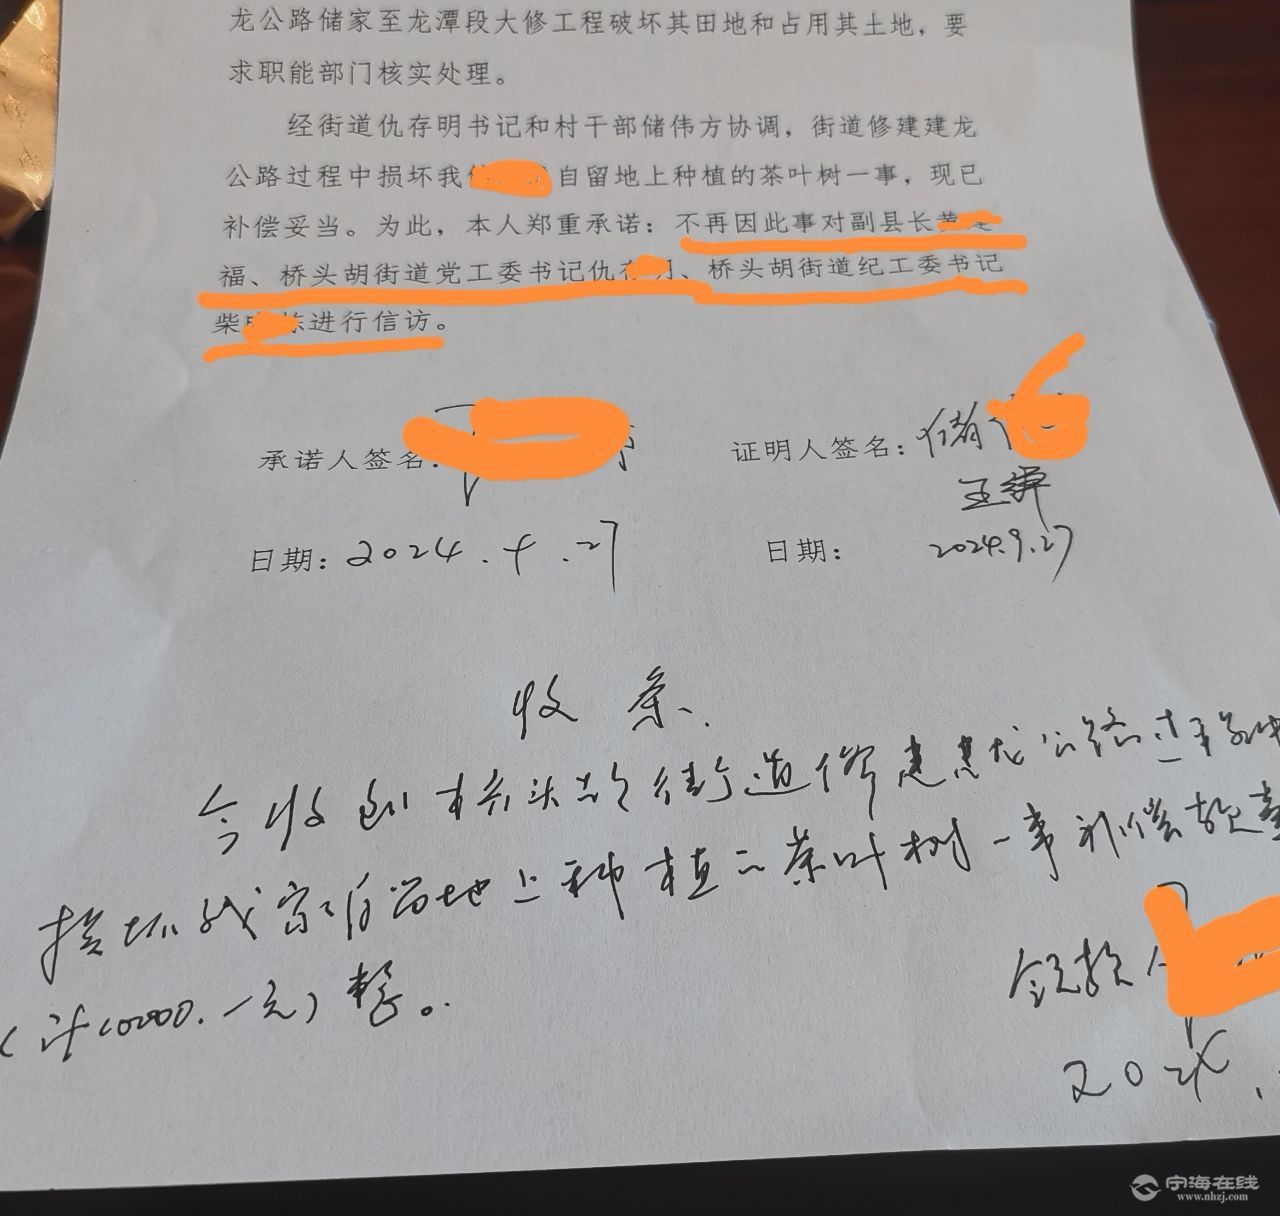 龙公路储家至龙潭段大修工程破坏其田地和占用其土地，要
求职能部门核实处理。
经街道仇存明书记和村干部储伟方协调，街道修建建龙
公路过程中损坏我自留地上种植的茶叶树一事，现已
补偿妥当。为此，本人郑重承诺：不再因此事对副县长
福、桥头胡街道党工委书记仇、桥头胡街道纪工委书记
柴进行信访。
承诺人签名：
证明人签名：储
王辉
日期：2024.9.27
日期：2024.9.27
收条.
今收到桥头胡街道修建建龙公路过程中
损坏我家自留地上种植的茶叶树一事补偿款
(计10000.-元)整。
领款人
202
宁海在线
www.nhzj.com